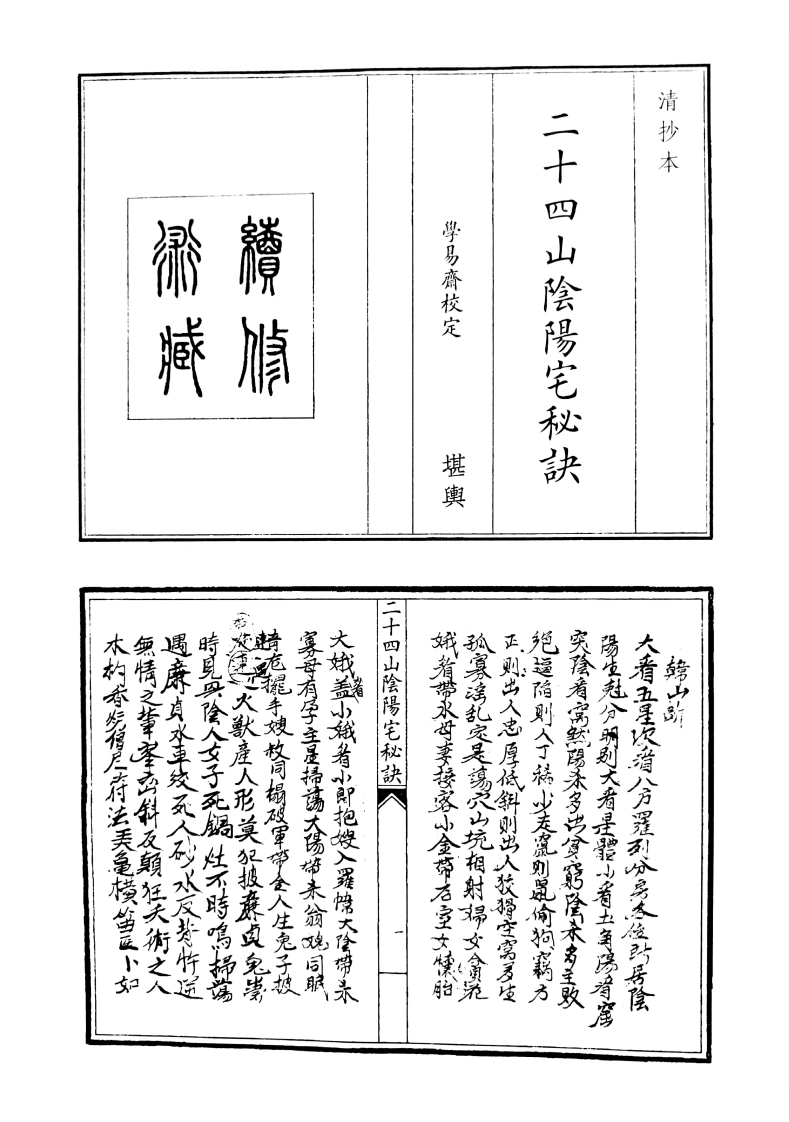 清抄本
二十四山陰陽宅秘訣
學易齋校定　堪輿
續修
術藏
大看五星次看八方羅列分房各位所居陰
陽生尅分明別大看是體小看土角陽看窩
突陰看窩然陽來多出貧窮陰來多主敗
絕逼陷則人丁稀少走竄則鼠偷狗竊方
正則出人忠厚低斜則出人狡猾空窩多生
孤寡淫乱定是蕩穴山坑相射婦女貪淫
娥眉帶水母妻接客小金帶石室女懷胎
二十四山陰陽宅秘訣
一
大娥蓋小娥者小郎抱嫂入羅幃太陰帶來
寡母有孕主星掃蕩太陽帶來翁媳同眠
擺手嫂叔同榻破軍帶金人生兔子披
火獸產人形莫犯披廉貞鬼祟
時見無陰人女子死鍋灶不時鳴掃蕩
遇廉貞水車絞死人砂水反背忤逆
無情之輩巒斜反顛狂夭術之人
木杓香炉僧尼符法丟龜橫笛医卜如